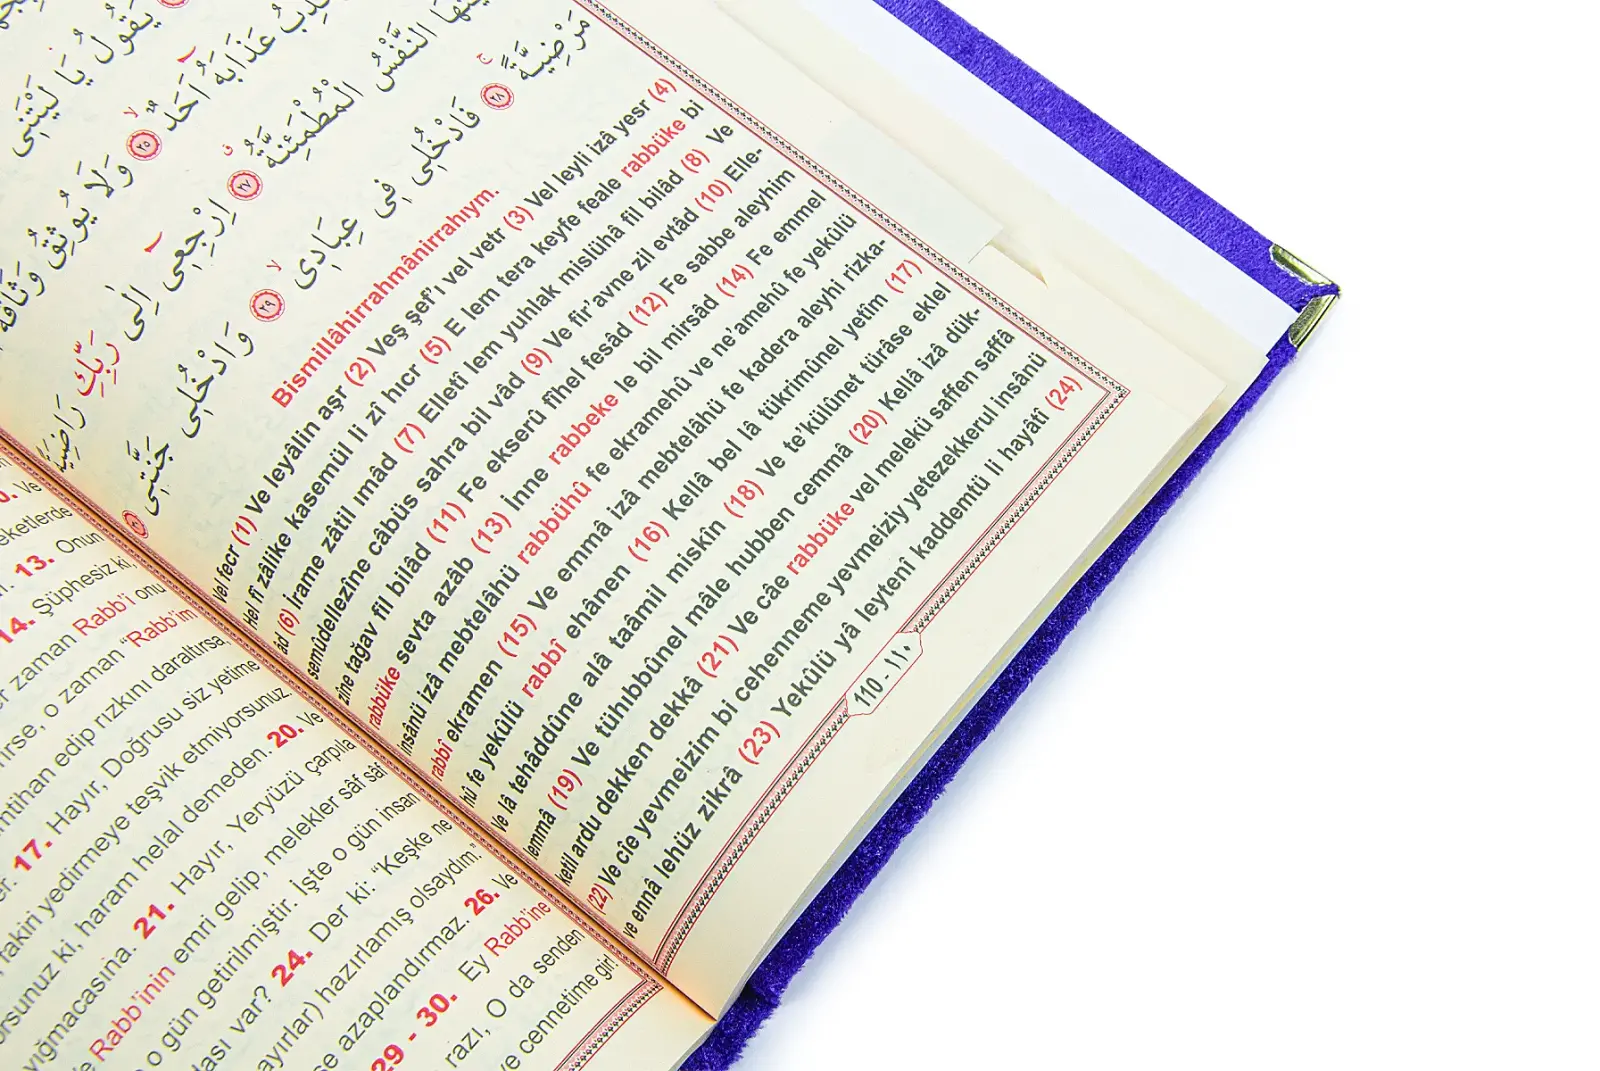 يَقُولُ يَا لَيْتَنِى
عَذَابَهُ اَحَدٌ ﴿٢٥﴾ وَلَا يُوثِقُ وَثَاقَهُ
النَّفْسُ الْمُطْمَئِنَّةُ ﴿٢٧﴾ اِرْجِعِى اِلٰى رَبِّكِ رَاضِيَةً
مَرْضِيَّةً ﴿٢٨﴾ فَادْخُلِى فِى عِبَادِى ﴿٢٩﴾ وَادْخُلِى جَنَّتِى ﴿٣٠﴾
Bismillâhirrahmânirrahıym.
Vel fecr (1) Ve leyâlin aşr (2) Veş şef'ı vel vetr (3) Vel leyli izâ yesr (4)
Hel fî zâlike kasemül li zî hıcr (5) E lem tera keyfe feale rabbüke bi
âd (6) İrame zâtil ımâd (7) Elletî lem yuhlak mislühâ fil bilâd (8) Ve
semûdellezîne câbüs sahra bil vâd (9) Ve fir'avne zil evtâd (10) Elle-
zîne tağav fil bilâd (11) Fe ekserû fîhel fesâd (12) Fe sabbe aleyhim
rabbüke sevta azâb (13) İnne rabbeke le bil mirsâd (14) Fe emmel
insânü izâ mebtelâhü rabbühû fe ekramehû ve ne'amehû fe yekûlü
rabbî ekramen (15) Ve emmâ izâ mebtelâhü fe kadera aleyhi rizka-
hû fe yekûlü rabbî ehânen (16) Kellâ bel lâ tükrimûnel yetîm (17)
Ve lâ tehâddûne alâ taâmil miskîn (18) Ve te'külûnet türâse eklel
lemmâ (19) Ve tühıbbûnel mâle hubben cemmâ (20) Kellâ izâ dük-
ketil ardu dekken dekkâ (21) Ve câe rabbüke vel melekü saffen saffâ
(22) Ve cîe yevmeizim bi cehenneme yevmeiziy yetezekkerul insânü
ve ennâ lehüz zikrâ (23) Yekûlü yâ leytenî kaddemtü li hayâtî (24)
110 - ١١٠
Ve
eketlerde
13. Onun
14. Şüphesiz ki,
zaman Rabb'i onu
o zaman "Rabb'im
imtihan edip rızkını daraltırsa,
17. Hayır, Doğrusu siz yetime
fakiri yedirmeye teşvik etmiyorsunuz.
ki, haram helal demeden. 20. Ve
yığmacasına. 21. Hayır, Yeryüzü çarpıla
Rabb'inin emri gelip, melekler sâf sâf
o gün getirilmiştir. İşte o gün insan
var? 24. Der ki: "Keşke ne
hazırlamış olsaydım."
azaplandırmaz. 26. Ve
29 - 30. Ey Rabb'ine
razı, O da senden
ve cennetime gir!